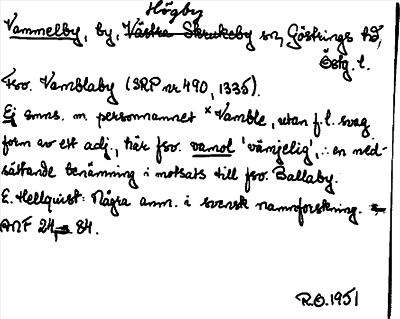 Högby
Vammelby, by, Västra Skrukeby sn, Göstrings hd,
Östg. l.
Fsv. Vamblaby (SRP nr 490, 1335).
Ej smns. m personnamnet *Vamble, utan f. l. svag
form av ett adj., här fsv. vamol 'vämjelig', ∴ en ned-
sättande benämning i motsats till fsv. Ballaby.
E. Hellquist: Några anm. i svensk namnforskning.
ANF 24, 84.
R.O. 1951